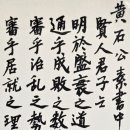 黄石公素書中
賢人君子
明於盛衰之道
通乎成敗之數
審乎治乱之勢
審乎居就之理